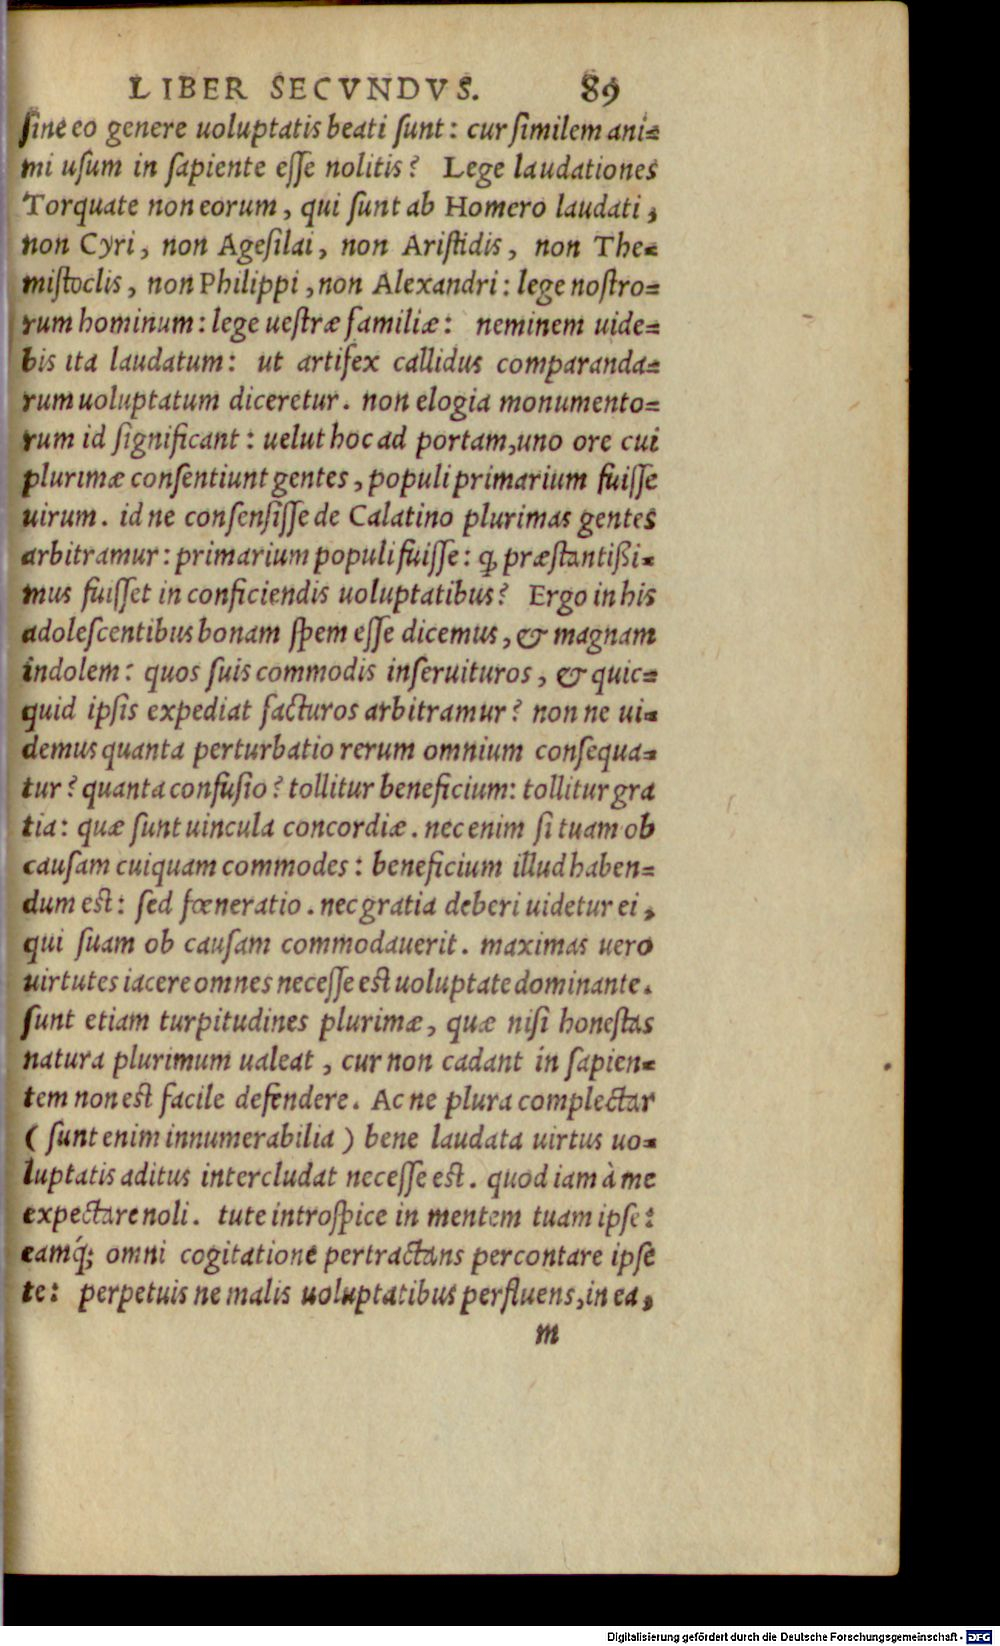 LIBER SECVNDVS. 89
ſine eo genere uoluptatis beati ſunt: cur ſimilem ani-
mi uſum in ſapiente eſſe nolitis? Lege laudationes
Torquate non eorum, qui ſunt ab Homero laudati,
non Cyri, non Ageſilai, non Ariſtidis, non The-
miſtoclis, non Philippi, non Alexandri: lege noſtro-
rum hominum: lege ueſtræ familiæ: neminem uide-
bis ita laudatum: ut artifex callidus comparanda-
rum uoluptatum diceretur. non elogia monumento-
rum id ſignificant: uelut hoc ad portam, uno ore cui
plurimæ conſentiunt gentes, populi primarium fuiſſe
uirum. id ne conſenſiſſe de Calatino plurimas gentes
arbitramur: primarium populi fuiſſe: ꝙ præſtantißi-
mus fuiſſet in conficiendis uoluptatibus? Ergo in his
adoleſcentibus bonam ſpem eſſe dicemus, & magnam
indolem: quos ſuis commodis inſeruituros, & quic-
quid ipſis expediat facturos arbitramur? non ne ui-
demus quanta perturbatio rerum omnium conſequa-
tur? quanta confuſio? tollitur beneficium: tollitur gra
tia: quæ ſunt uincula concordiæ. nec enim ſi tuam ob
cauſam cuiquam commodes: beneficium illud haben-
dum est: ſed fœneratio. nec gratia deberi uidetur ei,
qui ſuam ob cauſam commodauerit. maximas uero
uirtutes iacere omnes neceſſe est uoluptate dominante.
ſunt etiam turpitudines plurimæ, quæ niſi honeſtas
natura plurimum ualeat, cur non cadant in ſapien-
tem non est facile defendere. Ac ne plura complectar
(ſunt enim innumerabilia) bene laudata uirtus uo-
luptatis aditus intercludat neceſſe est. quod iam à me
expectare noli. tute introſpice in mentem tuam ipſe:
eamq́; omni cogitatione pertractans percontare ipſe
te: perpetuis ne malis uoluptatibus perfluens, in ea,
m
Digitalisierung gefördert durch die Deutsche Forschungsgemeinschaft - DFG